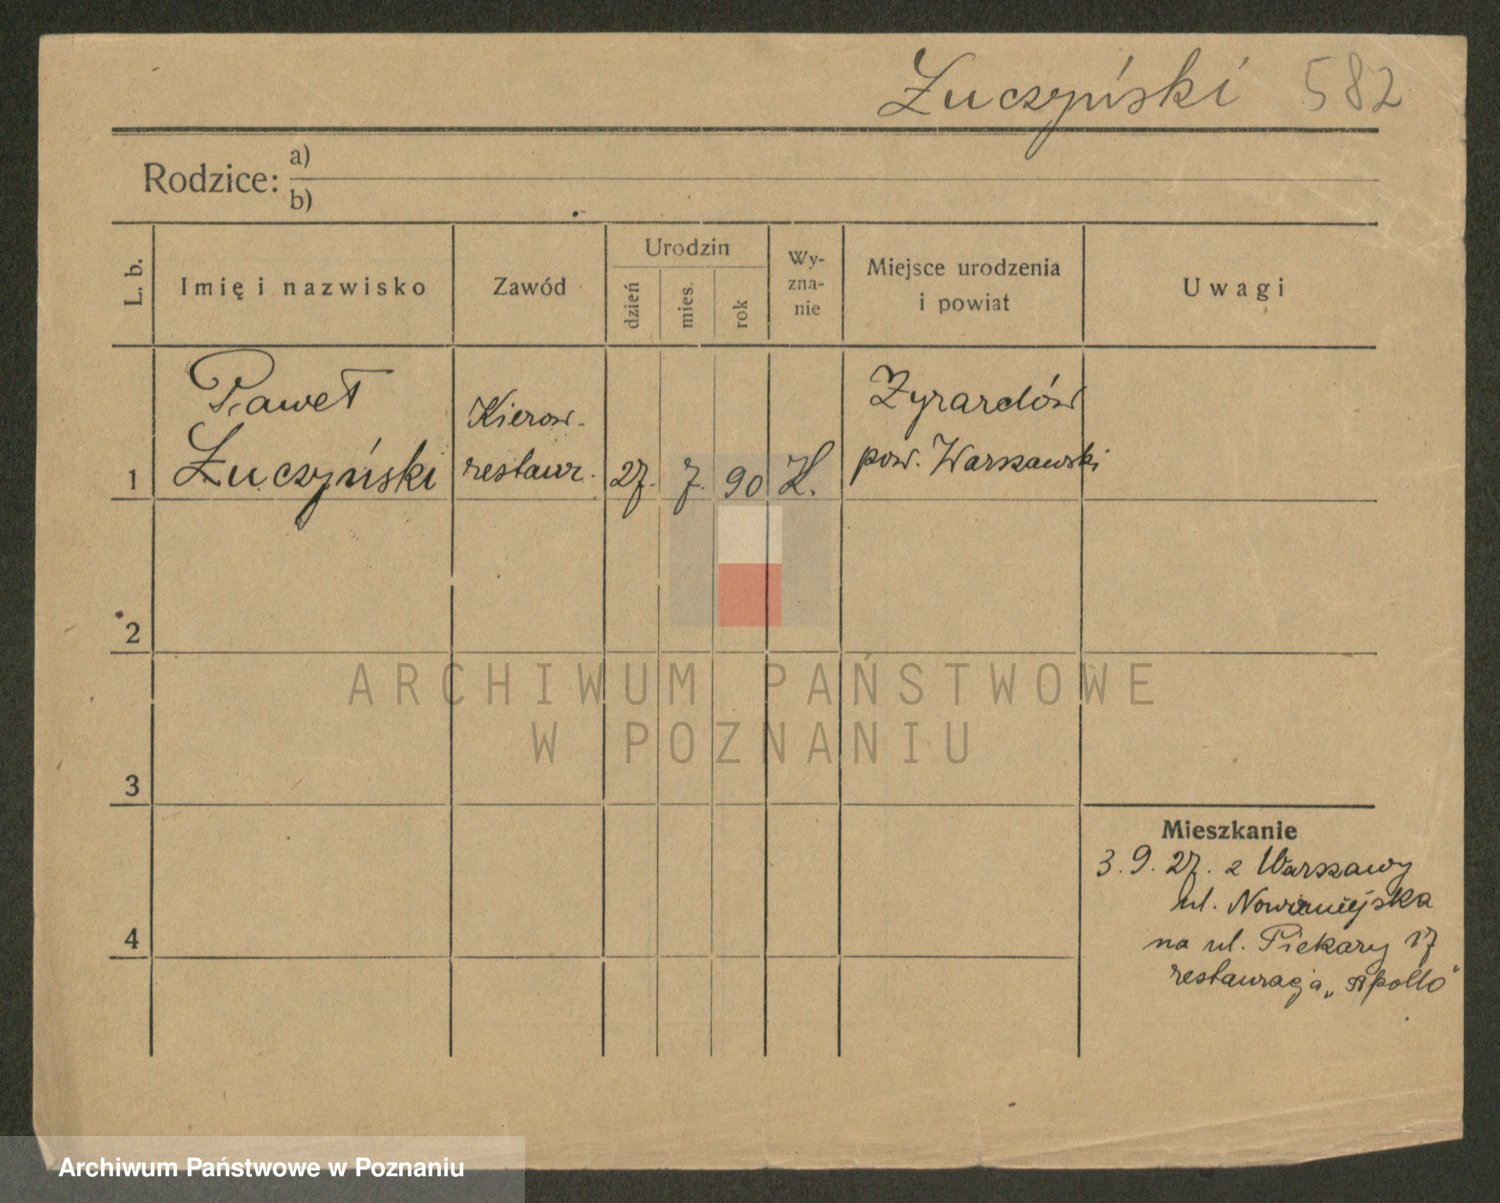 Łuczyński 582
Rodzice: a)
b)
L. b.
Imię i nazwisko
Zawód
Urodzin
dzień
mies.
rok
Wy-
zna-
nie
Miejsce urodzenia
i powiat
Uwagi
1
Paweł
Łuczyński
Kierow.
restaur.
27. 7. 90
K.
Żyrardów
pow. Warszawski
2
3
4
Mieszkanie
3. 9. 27. z Warszawy
ul. Nowiniejska
na ul. Piekary 17
restauracja „Apollo"
ARCHIWUM PAŃSTWOWE
W POZNANIU
Archiwum Państwowe w Poznaniu